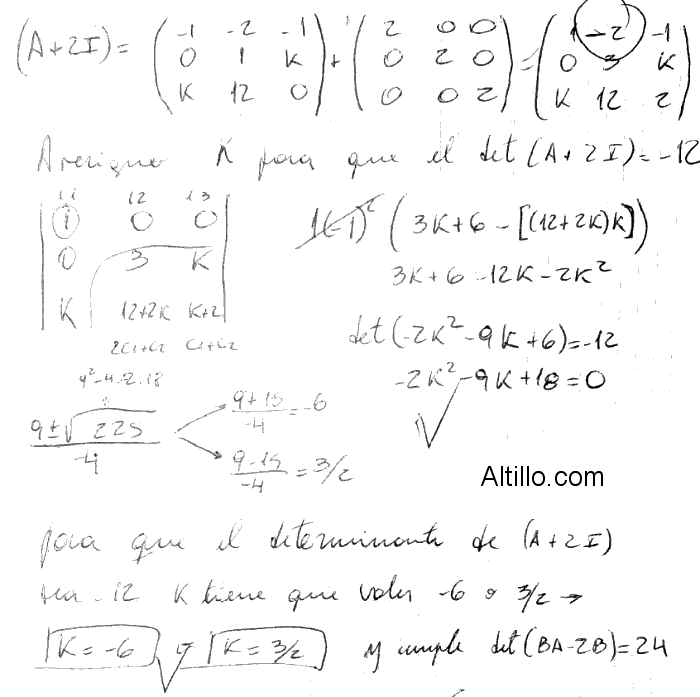 (A+2I) = ( -1 -2 -1 ) + ( 2 0 0 ) = ( 1 -2 -1 )
( 0 1 K ) ( 0 2 0 ) ( 0 3 K )
( K 12 0 ) ( 0 0 2 ) ( K 12 2 )
Averiguo K para que el det (A+2I) = -12
11 12 13
| 1 0 0 |
| 0 3 K |
| K 12+2K K+2 |
2C1+C2 C1+C2
1(-1)² ( 3K+6 - [(12+2K)K] )
3K+6 -12K -2K²
det(-2K² -9K+6) = -12
-2K² -9K+18 = 0
9²-4.-2.18
9±√225 / -4
9+15 / -4 = -6
9-15 / -4 = 3/2
Altillo.com
para que el determinante de (A+2I)
sea -12 K tiene que valer -6 o 3/2 →
K = -6 y K = 3/2 y cumple det(BA-2B) = 24